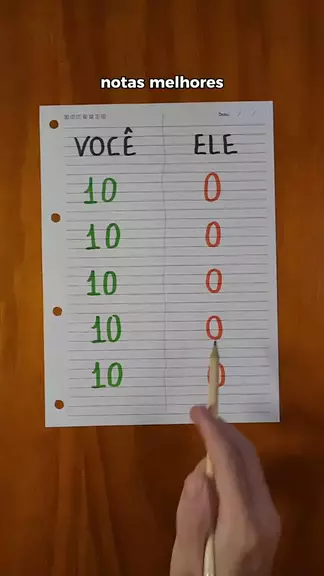 notas melhores
VOCÊ ELE
10 0
10 0
10 0
10 0
10 0